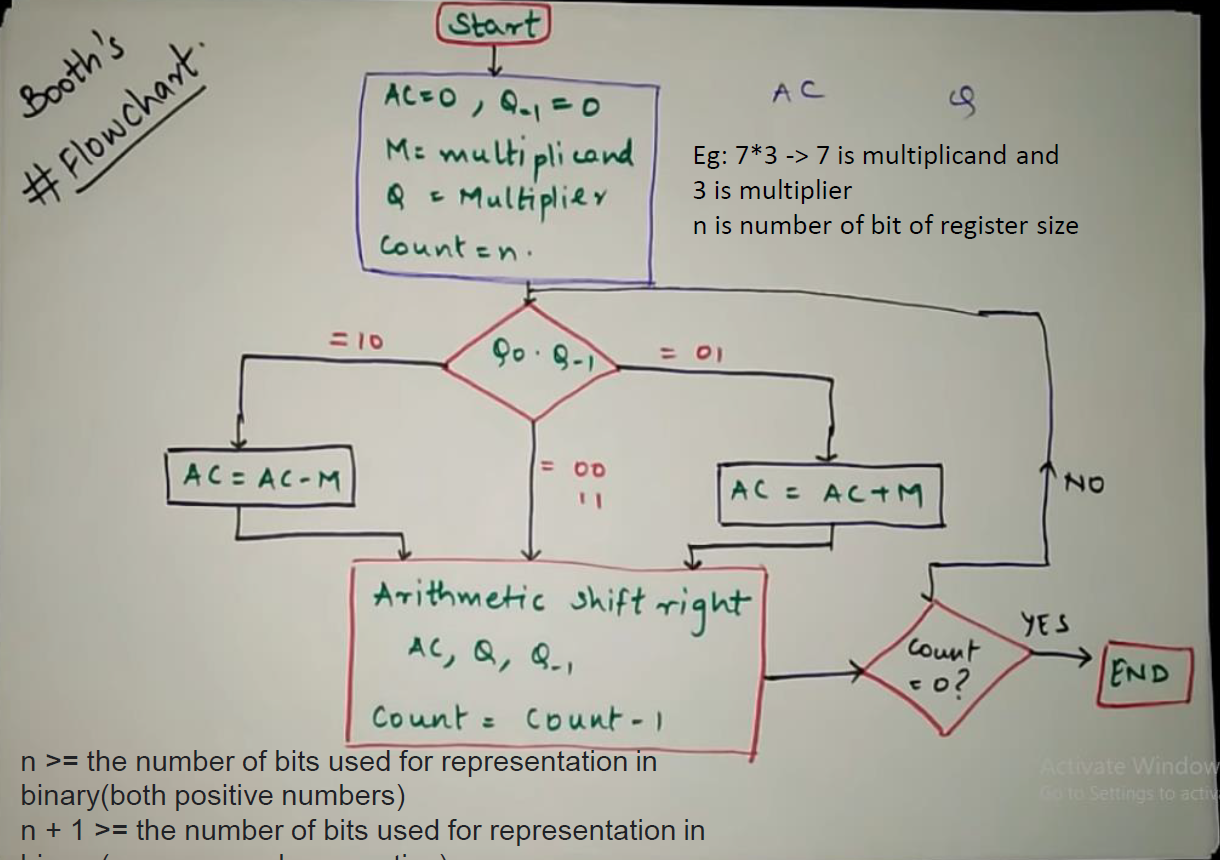 Booth's
#Flowchart.
Start
AC=0, Q-1=0
M= multiplicand
Q = Multiplier
Count=n.
AC Q
Eg: 7*3 -> 7 is multiplicand and
3 is multiplier
n is number of bit of register size
Q0.Q-1
=10
= 01
= 00
11
AC= AC-M
AC = AC+M
Arithmetic shift right
AC, Q, Q-1
Count = Count-1
Count
=0?
NO
YES
END
n >= the number of bits used for representation in
binary(both positive numbers)
n + 1 >= the number of bits used for representation in
Activate Window
Go to Settings to activ